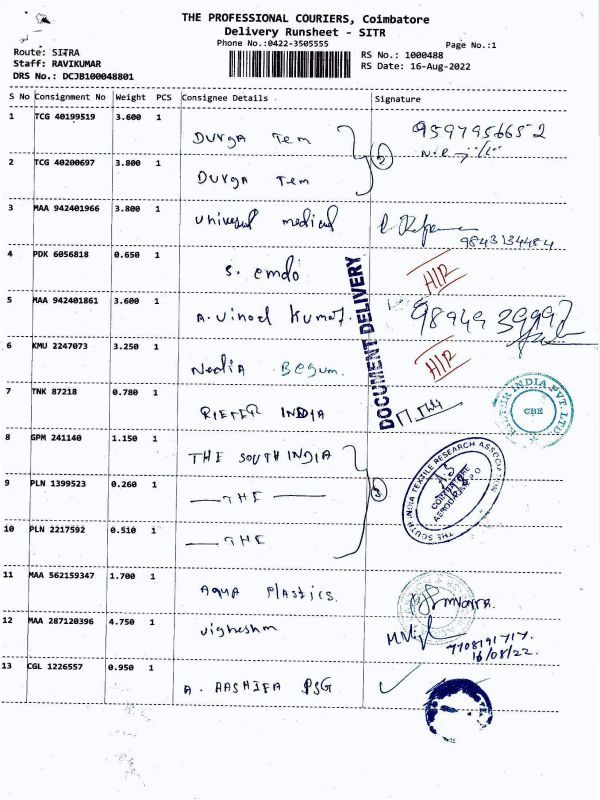 THE PROFESSIONAL COURIERS, Coimbatore
Delivery Runsheet - SITR
Phone No.:0422-3505555
Page No.:1
Route: SITRA
Staff: RAVIKUMAR
DRS No.: DCJB100048801
RS No.: 1000488
RS Date: 16-Aug-2022
S No Consignment No Weight PCS Consignee Details Signature
1 TCG 40199519 3.600 1 Durga Tem 9597956652
2 TCG 40200697 3.800 1 Durga Tem
2
3 MAA 942401966 3.800 1 Universal medical
9843134484
4 PDK 6056818 0.650 1 S. emdo HIR
5 MAA 942401861 3.600 1 A. Vinod Kumar. 9894939997
6 KMU 2247073 3.250 1 Nedia Begum. HIR
DOCUMENT DELIVERY
7 TNK 87218 0.780 1 RIETER INDIA
RIETER INDIA PVT. LTD.
CBE
8 GPM 241140 1.150 1 THE SOUTH INDIA
9 PLN 1399523 0.260 1 — THE —
10 PLN 2217592 0.510 1 — THE
3
THE SOUTH INDIA TEXTILE RESEARCH ASSOCIATION
COIMBATORE
AERODROME P.O
11 MAA 562159347 1.700 1 Aqua Plastics.
12 MAA 287120396 4.750 1 Vigheshm
7708191717.
16/08/22.
13 CGL 1226557 0.950 1 A. AASHIFA PSG